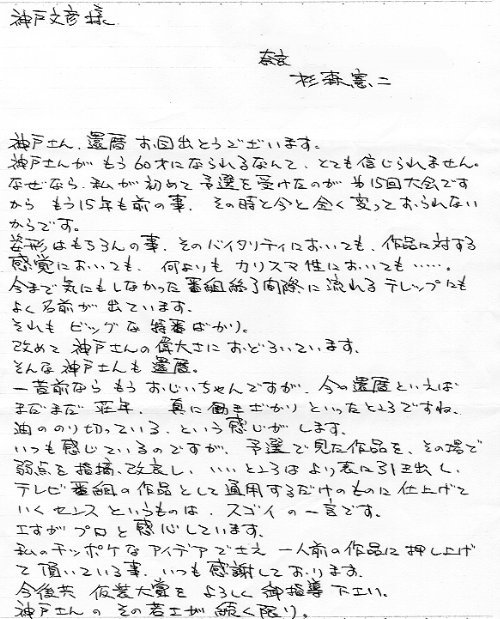 神戸文彦様
奈良
杉森憲二
神戸さん、還暦お目出とうございます。
神戸さんがもう60才になられるなんて、とても信じられません。
なぜなら、私が初めて予選を受けたのが第15回大会です
から もう15年も前の事、その時と今と全く変っておられない
からです。
姿形はもちろんの事、そのバイタリティにおいても、作品に対する
感覚においても、何よりもカリスマ性においても……。
今まで気にもしなかった番組終了間際に流れるテレップにも
よく名前が出ています。
それも ビッグな特番ばかり。
改めて神戸さんの偉大さにおどろいています。
そんな神戸さんも還暦。
一昔前なら もう おじいちゃんですが、今の還暦といえば
まだまだ壮年、真に働きざかりといったところですね。
油ののり切っている、という感じがします。
いつも感じているのですが、予選で見た作品を、その場で
弱点を指摘、改良し、いいところはより表に引き出し、
テレビ番組の作品として通用するだけのものに仕上げて
いくセンスというものは、スゴイの一言です。
さすがプロと感心しています。
私のチッポケなアイデアでさえ 一人前の作品に押し上げ
て頂いている事、いつも感謝しております。
今後共 仮装大賞を よろしく御指導下さい。
神戸さんの その若さが 続く限り。